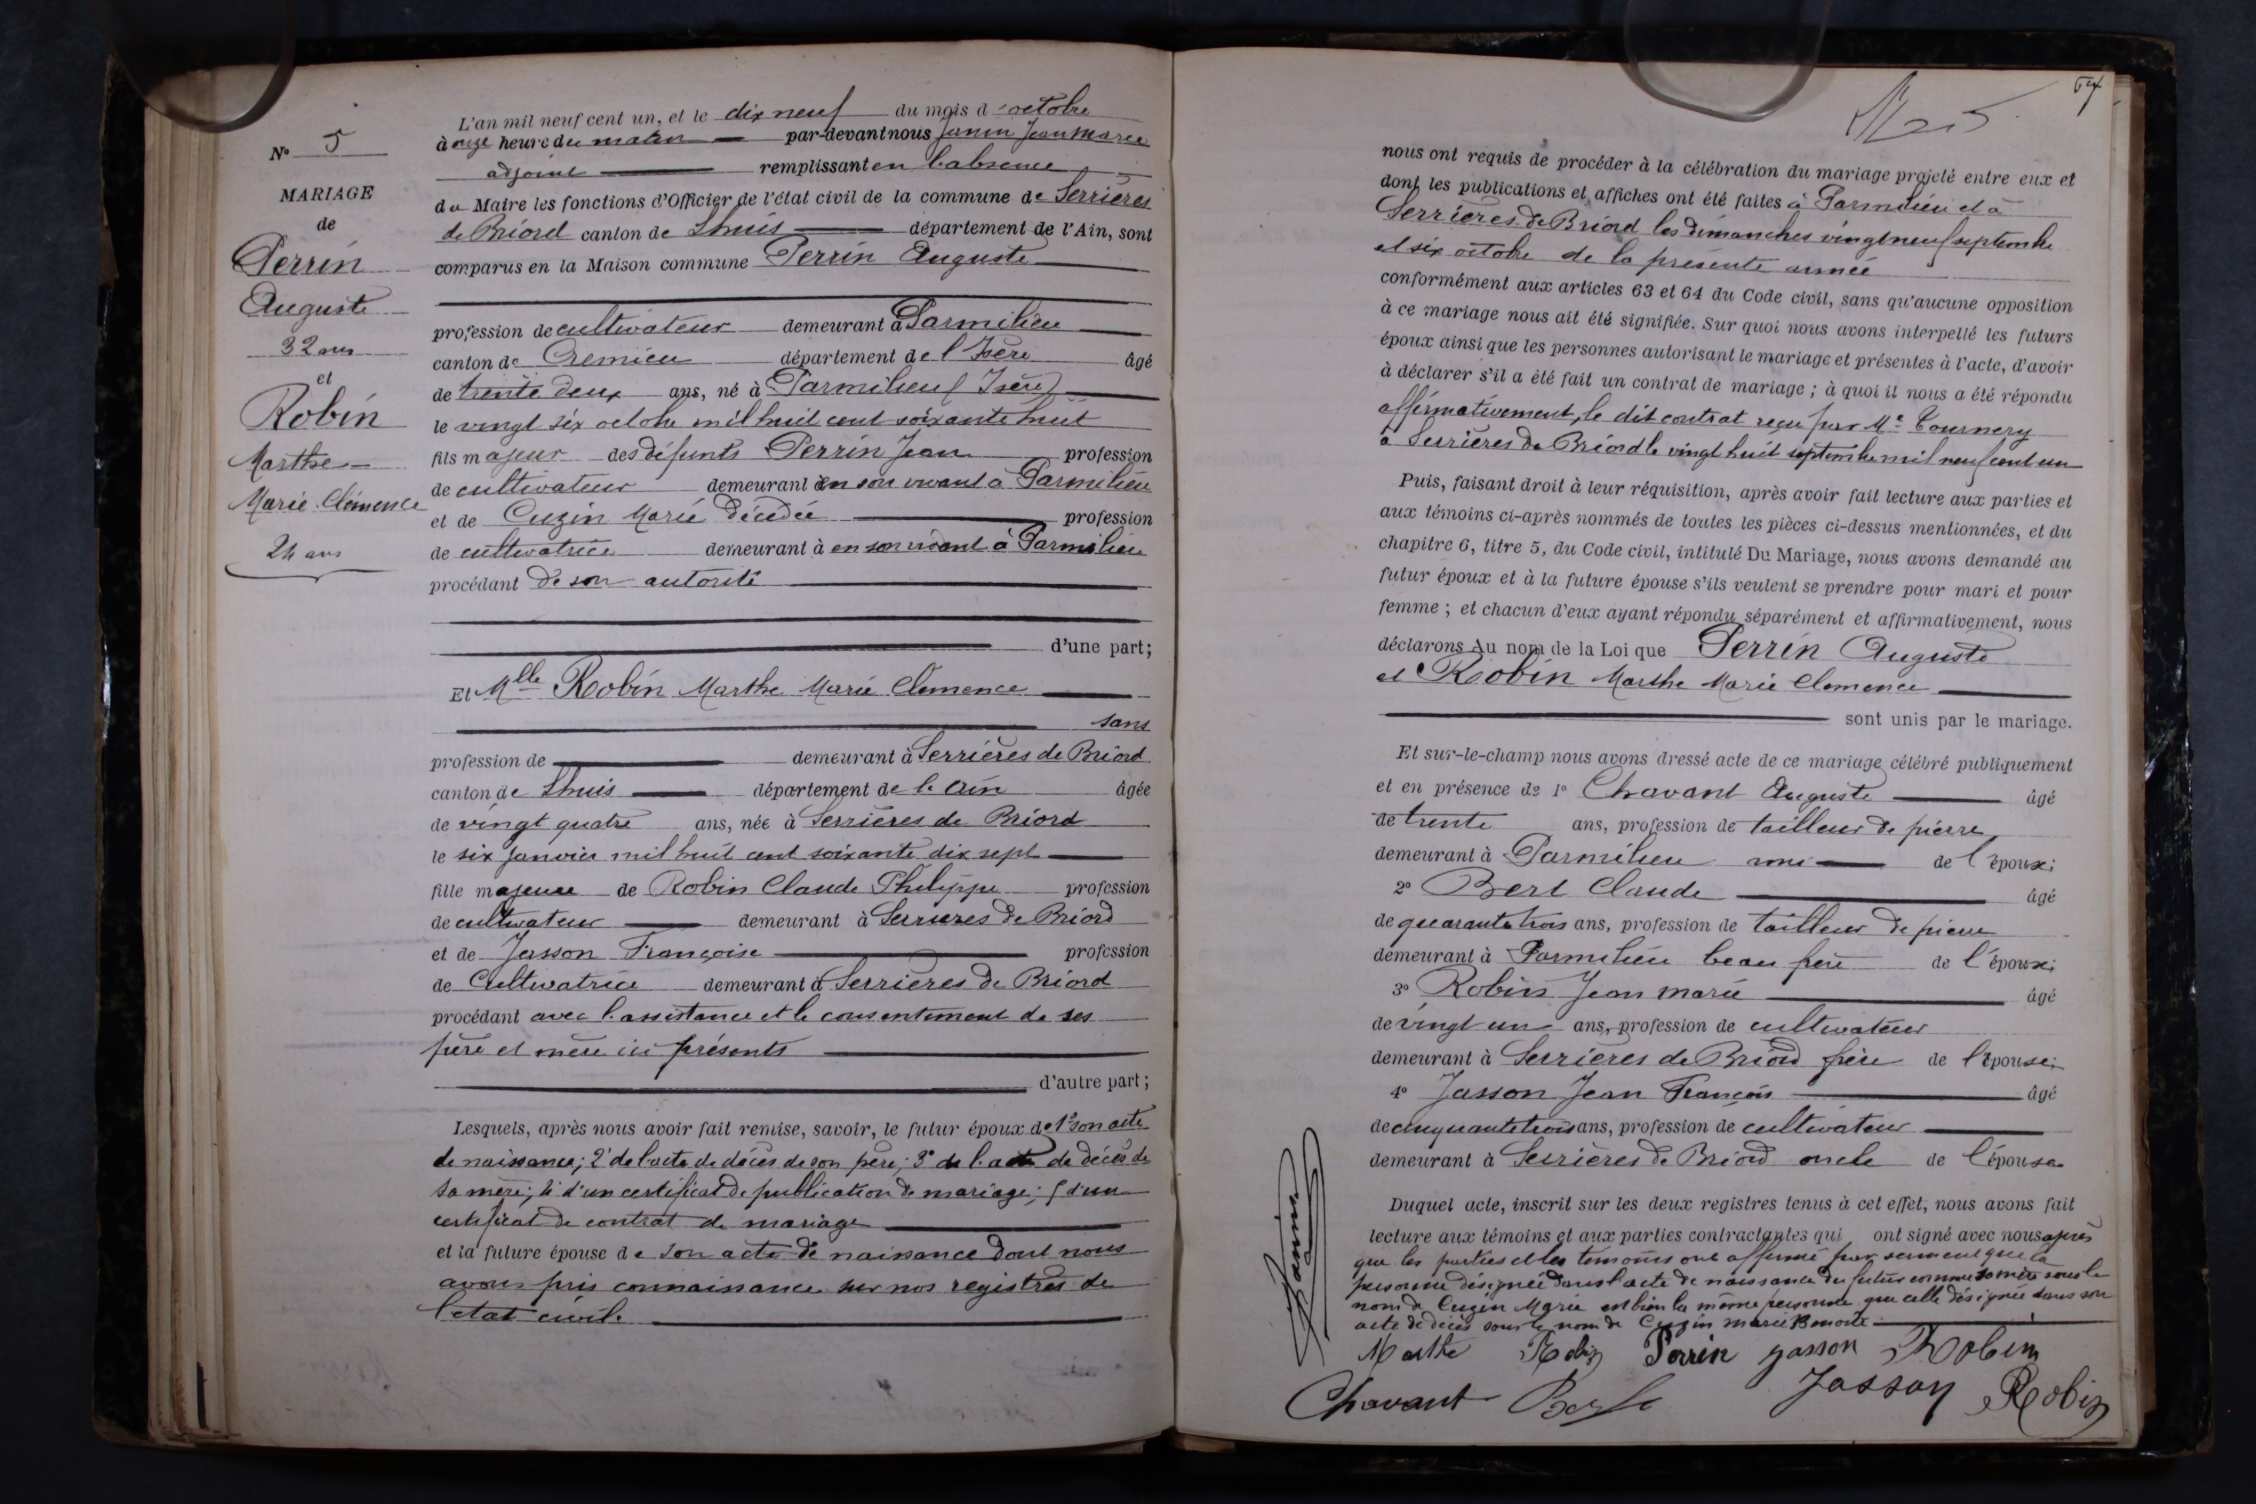 N° 5
MARIAGE
de
Perrin
Auguste
32 ans
et
Robin
Marthe
Marie Clémence
24 ans
L'an mil neuf cent un, et le dix neuf du mois d'octobre
à onze heure du matin par-devant nous Janin Jean Marie
adjoint remplissant en l'absence
du Maire les fonctions d'Officier de l'état civil de la commune de Serrières
de Briord canton de Lhuis département de l'Ain, sont
comparus en la Maison commune Perrin Auguste
profession de cultivateur demeurant à Parmilieu
canton de Cremieu département de l'Isère âgé
de trente deux ans, né à Parmilieu (Isère)
le vingt six octobre mil huit cent soixante huit
fils majeur des défunts Perrin Jean profession
de cultivateur demeurant en son vivant à Parmilieu
et de Cuzin Marie décédée profession
de cultivatrice demeurant à en son vivant à Parmilieu
procédant de son autorité
d'une part;
Et Mlle Robin Marthe Marie Clemence
sans
profession de demeurant à Serrières de Briord
canton de Lhuis département de l'Ain âgée
de vingt quatre ans, née à Serrières de Briord
le six janvier mil huit cent soixante dix sept
fille majeure de Robin Claude Philippe profession
de cultivateur demeurant à Serrieres de Briord
et de Jasson Françoise profession
de Cultivatrice demeurant à Serrières de Briord
procédant avec l'assistance et le consentement de ses
père et mère ici présents
d'autre part;
Lesquels, après nous avoir fait remise, savoir, le futur époux de 1° son acte
de naissance; 2° de l'acte de décès de son père; 3° de l'acte de décès de
sa mère; 4° d'un certificat de publication de mariage; 5 d'un
certificat de contrat de mariage
et la future épouse de son acte de naissance dont nous
avons pris connaissance sur nos registres de
l'etat civil.
67
N° 5
nous ont requis de procéder à la célébration du mariage projeté entre eux et
dont les publications et affiches ont été faites à Parmilieu et à
Serrières de Briord les dimanches vingt neuf septembre
et six octobre de la presente année
conformément aux articles 63 et 64 du Code civil, sans qu'aucune opposition
à ce mariage nous ait été signifiée. Sur quoi nous avons interpellé les futurs
époux ainsi que les personnes autorisant le mariage et présentes à l'acte, d'avoir
à déclarer s'il a été fait un contrat de mariage; à quoi il nous a été répondu
affirmativement, le dit contrat reçu par Me Tournery
à Serrières de Briord le vingt huit septembre mil neuf cent un
Puis, faisant droit à leur réquisition, après avoir fait lecture aux parties et
aux témoins ci-après nommés de toutes les pièces ci-dessus mentionnées, et du
chapitre 6, titre 5, du Code civil, intitulé Du Mariage, nous avons demandé au
futur époux et à la future épouse s'ils veulent se prendre pour mari et pour
femme; et chacun d'eux ayant répondu séparément et affirmativement, nous
déclarons Au nom de la Loi que Perrin Auguste
et Robin Marthe Marie Clemence
sont unis par le mariage.
Et sur-le-champ nous avons dressé acte de ce mariage célébré publiquement
et en présence de 1° Chavant Auguste âgé
de trente ans, profession de tailleur de pierre
demeurant à Parmilieu ami de l'époux;
2° Bert Claude âgé
de quarante trois ans, profession de tailleur de pierre
demeurant à Parmilieu beau frère de l'époux;
3° Robin Jean Marie âgé
de vingt un ans, profession de cultivateur
demeurant à Serrières de Briord frère de l'épouse;
4° Jasson Jean François âgé
de cinquante trois ans, profession de cultivateur
demeurant à Serrières de Briord oncle de l'épouse
Duquel acte, inscrit sur les deux registres tenus à cet effet, nous avons fait
lecture aux témoins et aux parties contractantes qui ont signé avec nous après
que les parties et les temoins ont affirmé par serment que la
personne désignée dans l'acte de naissance du futur comme sa mère sous le
nom de Cuzin Marie est bien la même personne que celle désignée dans son
acte de décès sous le nom de Cuzin Marie Benoite
Marthe Robin Perrin Jasson Robin
Chavant Bert Jasson Robin
Janin